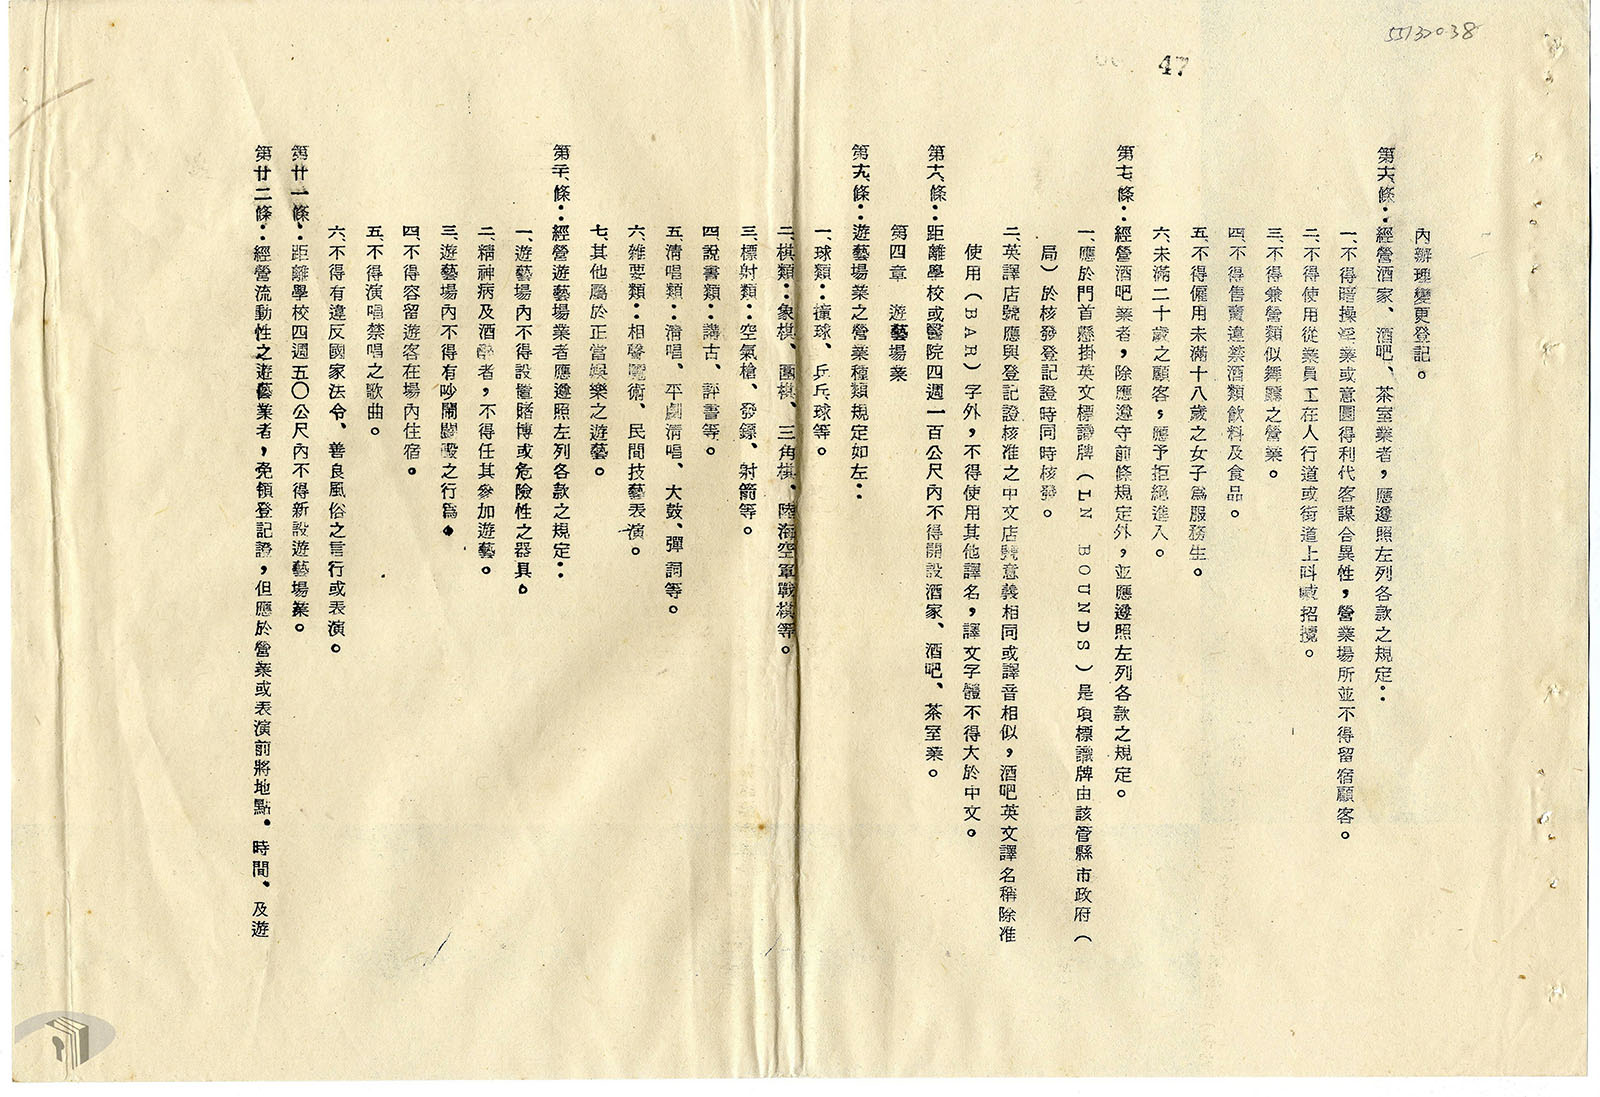 55132038
47
內辦理變更登記。
第十六條：經營酒家、酒吧、茶室業者，應遵照左列各款之規定：
一、不得暗操淫業或意圖得利代客謀合異性，營業場所並不得留宿顧客。
二、不得使用從業員工在人行道或街道上叫喊招攬。
三、不得兼營類似舞廳之營業。
四、不得售賣違禁酒類飲料及食品。
五、不得僱用未滿十八歲之女子為服務生。
六、未滿二十歲之顧客，應予拒絕進入。
第十七條：經營酒吧業者，除應遵守前條規定外，並應遵照左列各款之規定。
一、應於門首懸掛英文標識牌（IN BOUNDS）是項標識牌由該管縣市政府（
局）於核發登記證時同時核發。
二、英譯店號應與登記證核准之中文店號意義相同或譯音相似，酒吧英文譯名稱除准
使用（BAR）字外，不得使用其他譯名，譯文字體不得大於中文。
第十八條：距離學校或醫院四週一百公尺內不得開設酒家、酒吧、茶室業。
第四章　遊藝場業
第十九條：遊藝場業之營業種類規定如左：
一、球類：撞球、乒乓球等。
二、棋類：象棋、圍棋、三角棋、陸海空軍戰棋等。
三、標射類：空氣槍、發鏢、射箭等。
四、說書類：講古、評書等。
五、清唱類：清唱、平劇清唱、大鼓、彈詞等。
六、雜耍類：相聲魔術、民間技藝表演。
七、其他屬於正當娛樂之遊藝。
第二十條：經營遊藝場業者應遵照左列各款之規定：
一、遊藝場內不得設置賭博或危險性之器具。
二、精神病及酒醉者，不得任其參加遊藝。
三、遊藝場內不得有吵鬧鬪毆之行為。
四、不得容留遊客在場內住宿。
五、不得演唱禁唱之歌曲。
六、不得有違反國家法令、善良風俗之言行或表演。
第廿一條：距離學校四週五〇公尺內不得新設遊藝場業。
第廿二條：經營流動性之遊藝業者，免領登記證，但應於營業或表演前將地點、時間、及遊